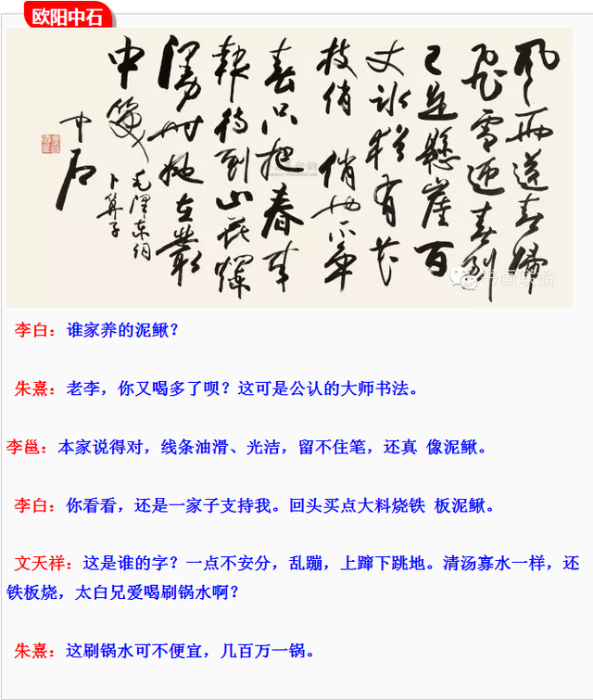 欧阳中石
風雨送春歸
飛雪迎春到
已是懸崖百
丈冰猶有花
枝俏俏也不爭
春只把春來
報待到山花爛
漫時她在叢
中笑
毛澤東詞
卜算子
中石
李白：谁家养的泥鳅？
朱熹：老李，你又喝多了呗？这可是公认的大师书法。
李邕：本家说得对，线条油滑、光洁，留不住笔，还真 像泥鳅。
李白：你看看，还是一家子支持我。回头买点大料烧铁 板泥鳅。
文天祥：这是谁的字？一点不安分，乱蹦，上蹿下跳地。清汤寡水一样，还
铁板烧，太白兄爱喝刷锅水啊？
朱熹：这刷锅水可不便宜，几百万一锅。